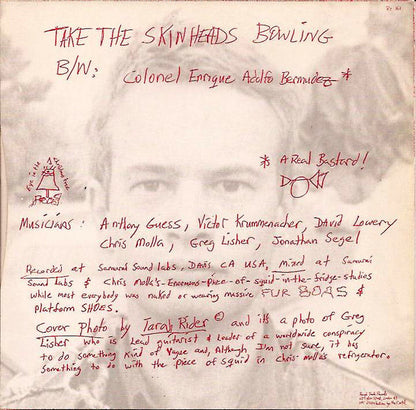 TAKE THE SKINHEADS BOWLING
B/W:
Colonel Enrique Adolfo Bermudez *
* A Real Bastard!
Musicians: Anthony Guess, Victor Krummenacher, David Lowery
Chris Molla, Greg Lisher, Jonathan Segel
Recorded at Samurai Sound labs, Davis CA USA, mixed at Samurai
Sound labs & Chris Molla's-Enormous-piece-of-squid-in-the-fridge-studios
while most everybody was naked or wearing massive FUR BOAS &
Platform SHOES.
Cover Photo by Tarah Rider © and it's a photo of Greg
Lisher who is Lead guitarist & Leader of a worldwide conspiracy
to do something Kind of Vague and, Although I'm not sure, it has
Something to do with the piece of squid in chris molla's refrigerator.